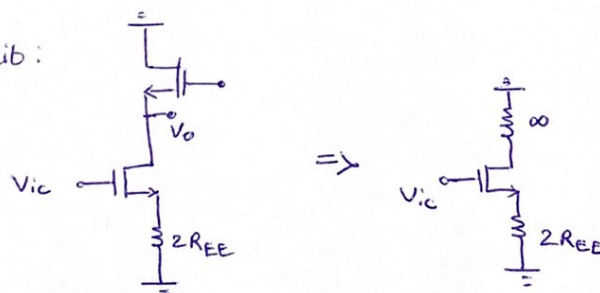 ib:
Vo
Vic
2REE
=>
∞
Vic
2REE